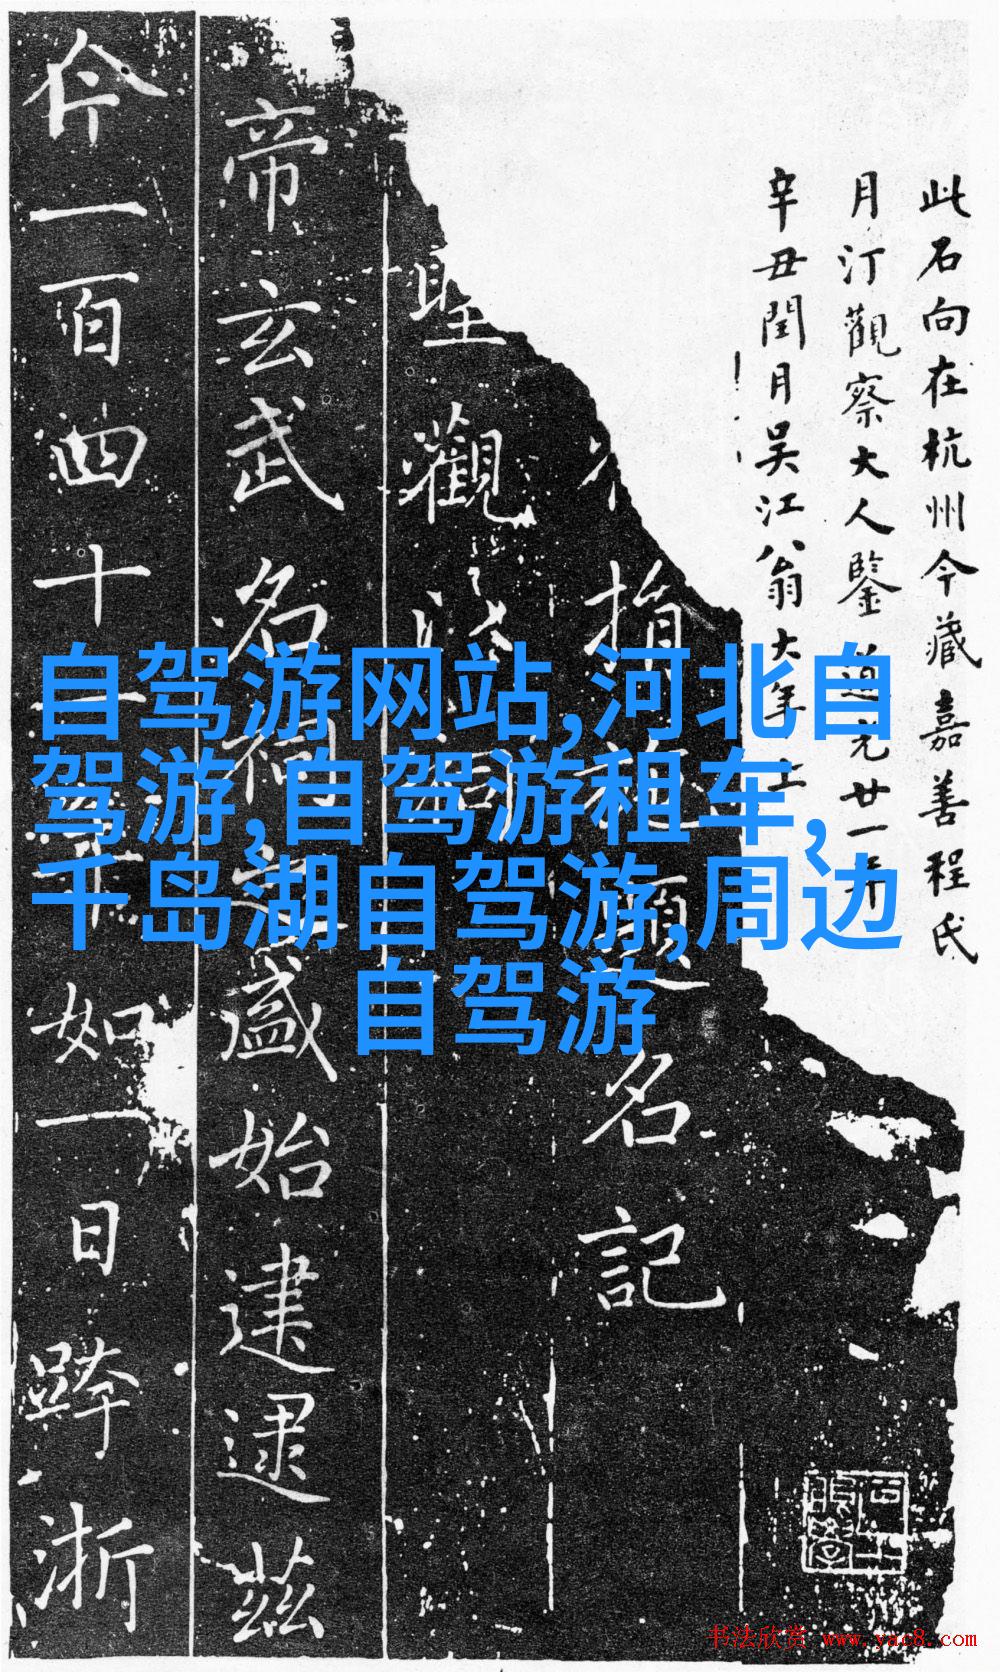 此石向在杭州今藏嘉善程氏
月汀觀察大人鑒道光廿一年
辛丑閏月吳江翁大年上
題名記
觀
帝玄武名盛始建逮茲
今一百四十如一日跨浙
自驾游网站,河北自
驾游,自驾游租车,
千岛湖自驾游,周边
自驾游
书法欣赏 www.yac8.com